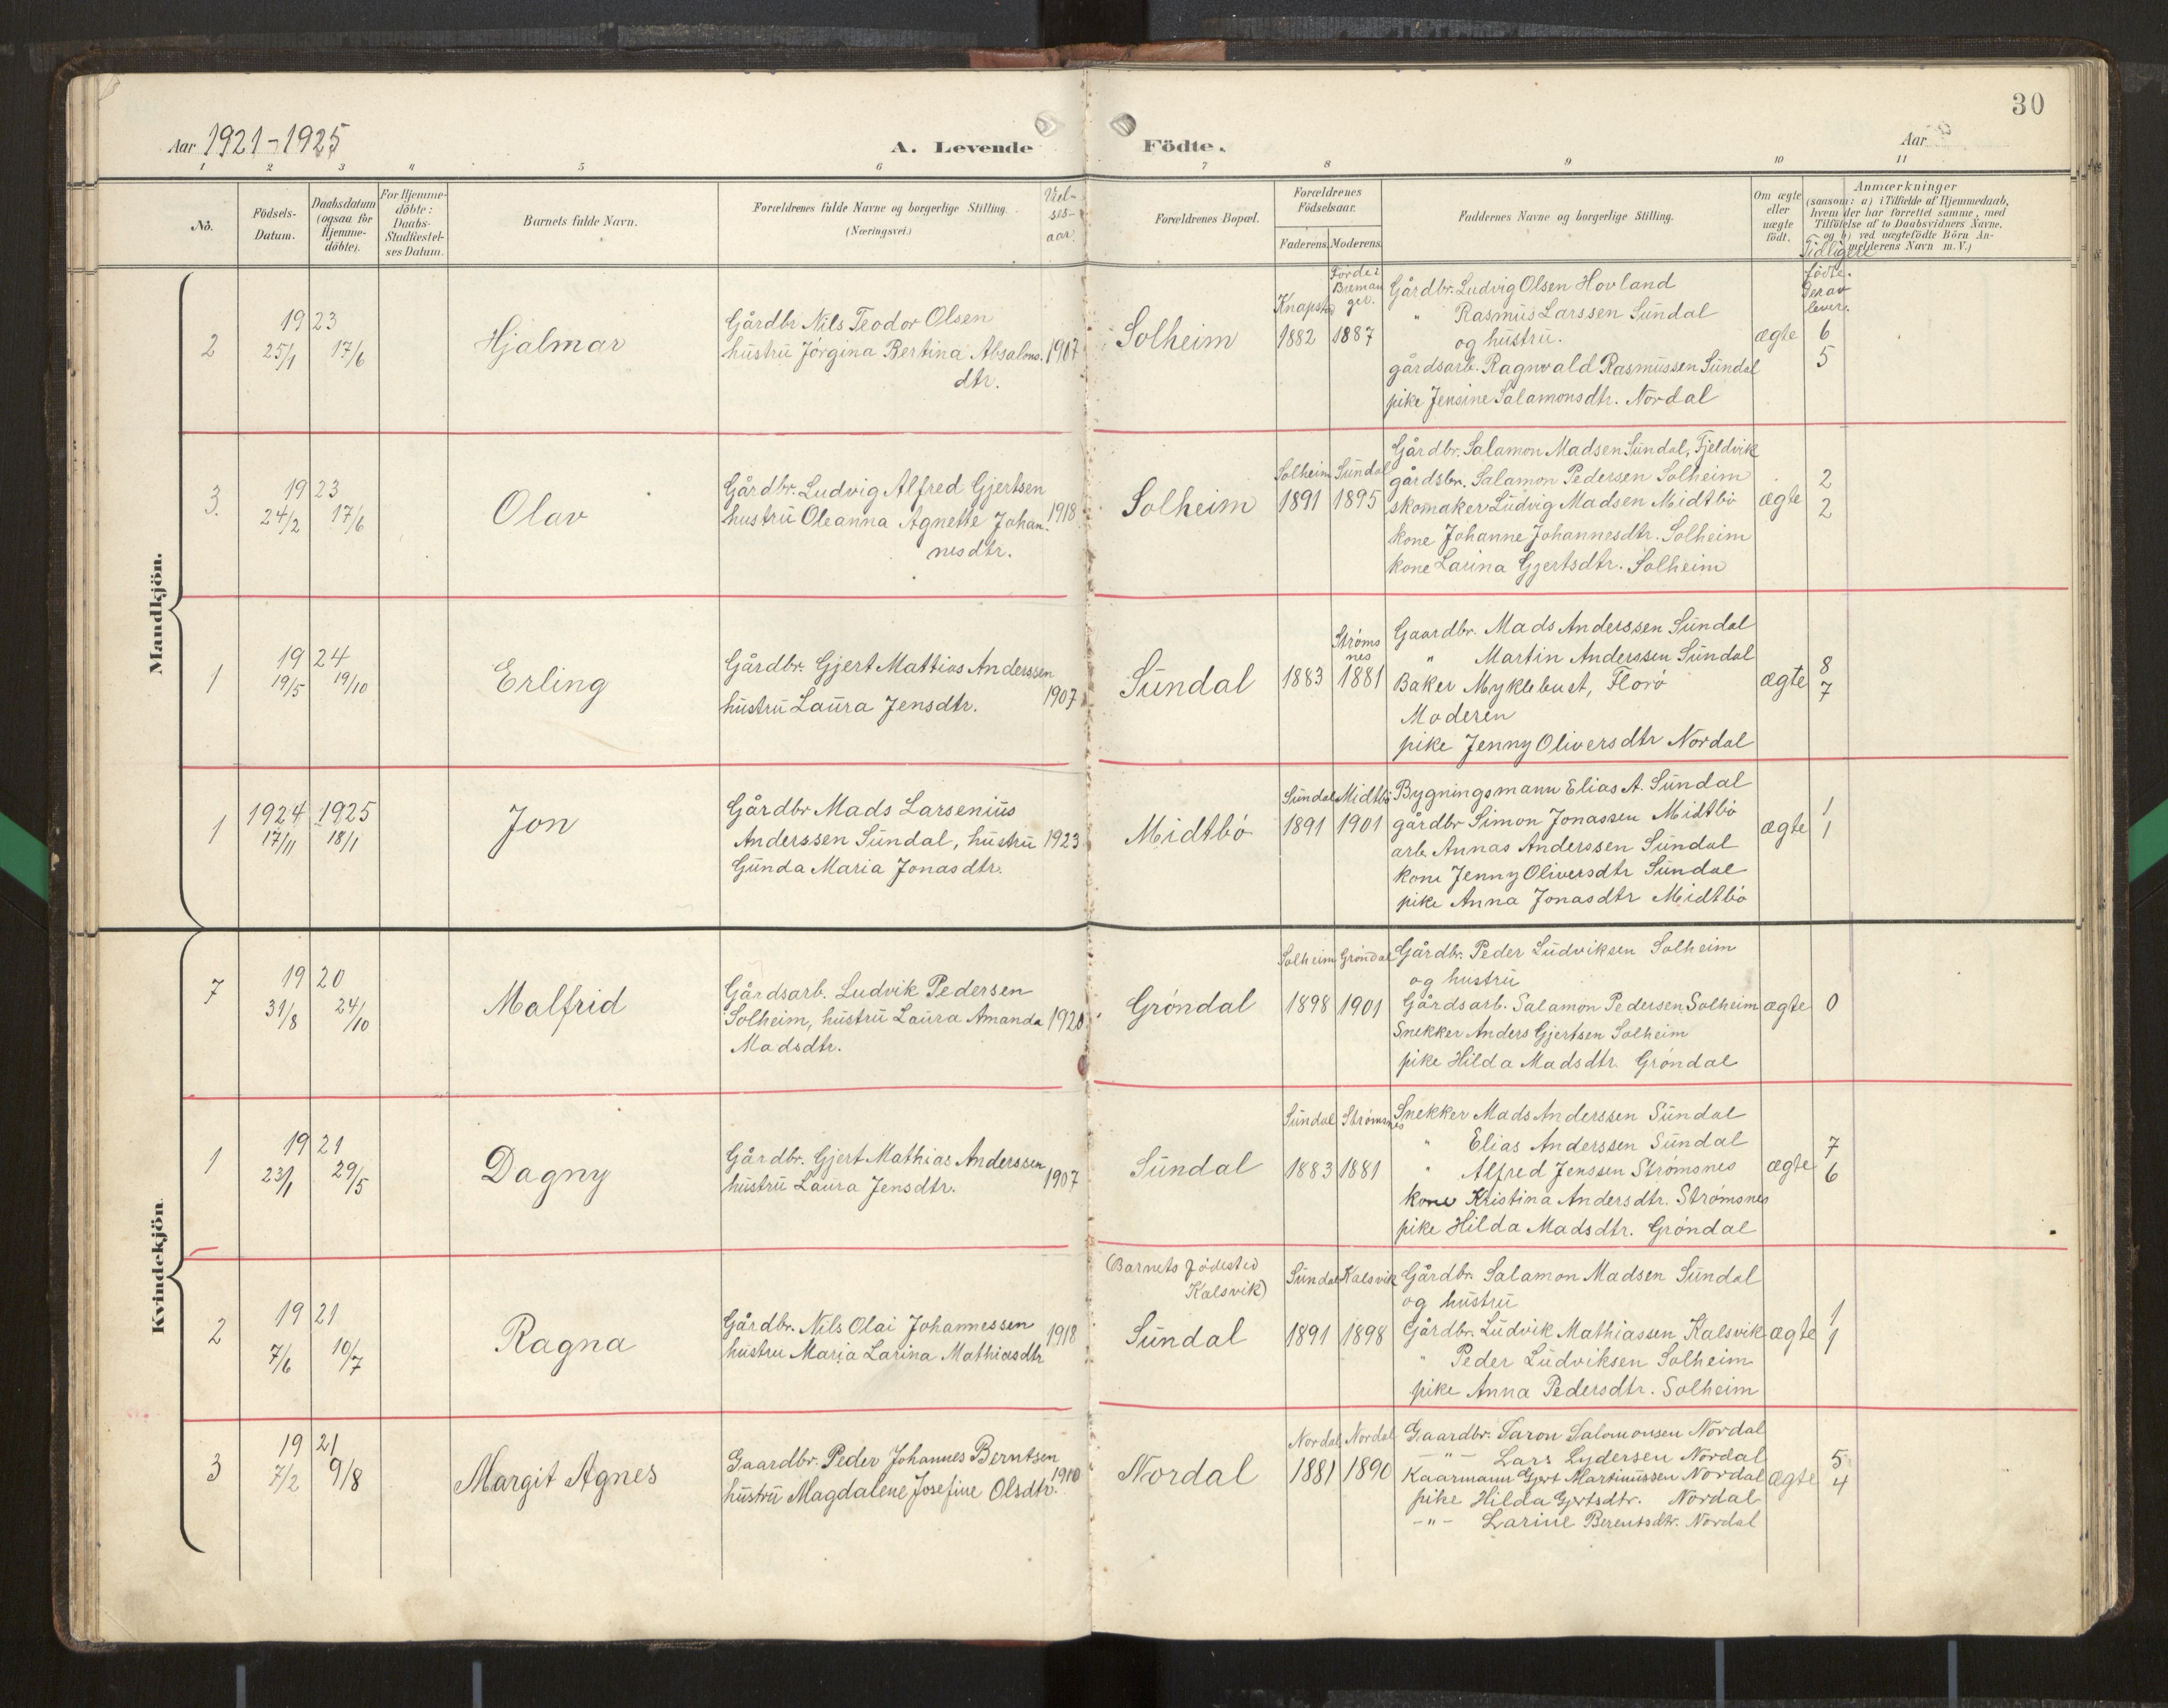 30
Aar 1921-1925
A. Levende Födte.
Aar
1 2 3 4 5 6 7 8 9 10 11
No.
Födsels-
Datum.
Daabsdatum
(ogsaa for
Hjemme-
döbte).
For Hjemme-
döbte:
Daabs-
Stadfæstel-
ses Datum.
Barnets fulde Navn.
Forældrenes fulde Navne og borgerlige Stilling.
(Næringsvei.)
Viel-
ses-
aar.
Forældrenes Bopæl.
Forældrenes
Födselsaar.
Faderens. Moderens.
Faddernes Navne og borgerlige Stilling.
Om ægte
eller
uægte
födt.
Anmærkninger
(saasom: a) i Tilfælde af Hjemmedaab,
hvem der har forrettet samme, med
Tilföielse af to Daabsvidners Navne,
og b) ved uægtefödte Börn An-
melderens Navn m. V.)
Tidligere
födte.
Derav
lever.
Mandkjön.
2
1923
25/1 17/6
Hjalmar
Gårdbr Nils Teodor Olsen
hustru Jörgina Bertina Absalms.
dtr.
1907
Solheim
Knapstad
1882
Förde i
Breman
ger.
1887
Gårdbr. Ludvig Olsen Hovland
" Rasmus Larssen Sundal
og hustru.
gårdsarb. Ragnvald Rasmussen Sundal
pike Jensine Salamonsdtr. Nordal
ægte
6
5
3.
1923
24/2 17/6
Olav
Gårdbr. Ludvig Alfred Gjertsen
hustru Oleanna Agnette Johan-
nesdtr.
1918
Solheim
Solheim
1891
Sundal
1895
Gårdbr. Salamon Madsen Sundal, Fjeldvik
gårdsbr. Salamon Pedersen Solheim
skomaker Ludvig Madsen Midtbö
kone Johanne Johannesdtr. Solheim
kone Larina Gjertsdtr. Solheim
ægte
2
2
1
1924
19/5 19/10
Erling
Gårdbr. Gjert Mattias Anderssen
hustru Laura Jensdtr.
1907
Sundal
1883
Ströms
nes
1881
Gaardbr. Mads Anderssen Sundal
" Martin Anderssen Sundal
Baker Myklebust, Florö
Moderen
pike Jenny Oliversdtr Nordal
ægte
8
7
1
1924 1925
17/11 18/1
Jon
Gårdbr Mads Larsenius
Anderssen Sundal, hustru
Gunda Maria Jonasdtr.
1923
Midtbö
Sundal
1891
Midtbö
1901
Bygningsmann Elias A. Sundal
gårdbr Simon Jonassen Midtbö
arb. Annas Anderssen Sundal
kone Jenny Oliversdtr Sundal
pike Anna Jonasdtr Midtbö
ægte
1
1
Kvindekjön
7
1920
31/8 24/10
Malfrid
Gårdsarb. Ludvik Pedersen
Solheim, hustru Laura Amanda
Madsdtr.
1920
Gröndal
Solheim
1898
Gröndal
1901
Gårdbr. Peder Ludviksen Solheim
og hustru
Gårdsarb. Salamon Pedersen Solheim
Snekker Anders Gjertsen Solheim
pike Hilda Madsdtr. Gröndal
ægte
0
1
1921
23/1 29/5
Dagny
Gårdbr. Gjert Mathias Anderssen
hustru Laura Jensdtr.
1907
Sundal
Sundal
1883
Strömsnes
1881
Snekker Mads Anderssen Sundal
" Elias Anderssen Sundal
" Alfred Jenssen Strömsnes
kone Kristina Andersdtr. Strömsnes
pike Hilda Madsdtr. Gröndal
ægte
7
6
2
1921
7/6 10/7
Ragna
Gårdbr. Nils Olai Johannessen
hustru Maria Larina Mathiasdtr
1918
(Barnets födested
Kalsvik)
Sundal
Sundal
1891
Kalsvik
1898
Gårdbr. Salamon Madsen Sundal
og hustru
Gårdbr. Ludvik Mathiassen Kalsvik
" Peder Ludviksen Solheim
pike Anna Pedersdtr. Solheim
ægte
1
1
3
1921
7/2 9/8
Margit Agnes
Gaardbr. Peder Johannes Berntsen
hustru Magdalene Josefine Olsdtr.
1910
Nordal
Nordal
1881
Nordal
1890
Gaardbr. Saron Salomonsen Nordal
-"- Lars Lydersen Nordal
Kaarmann Gjert Martinussen Nordal
pike Hilda Gjertsdtr. Nordal
-"- Larine Berentsdtr. Nordal
ægte
5
4